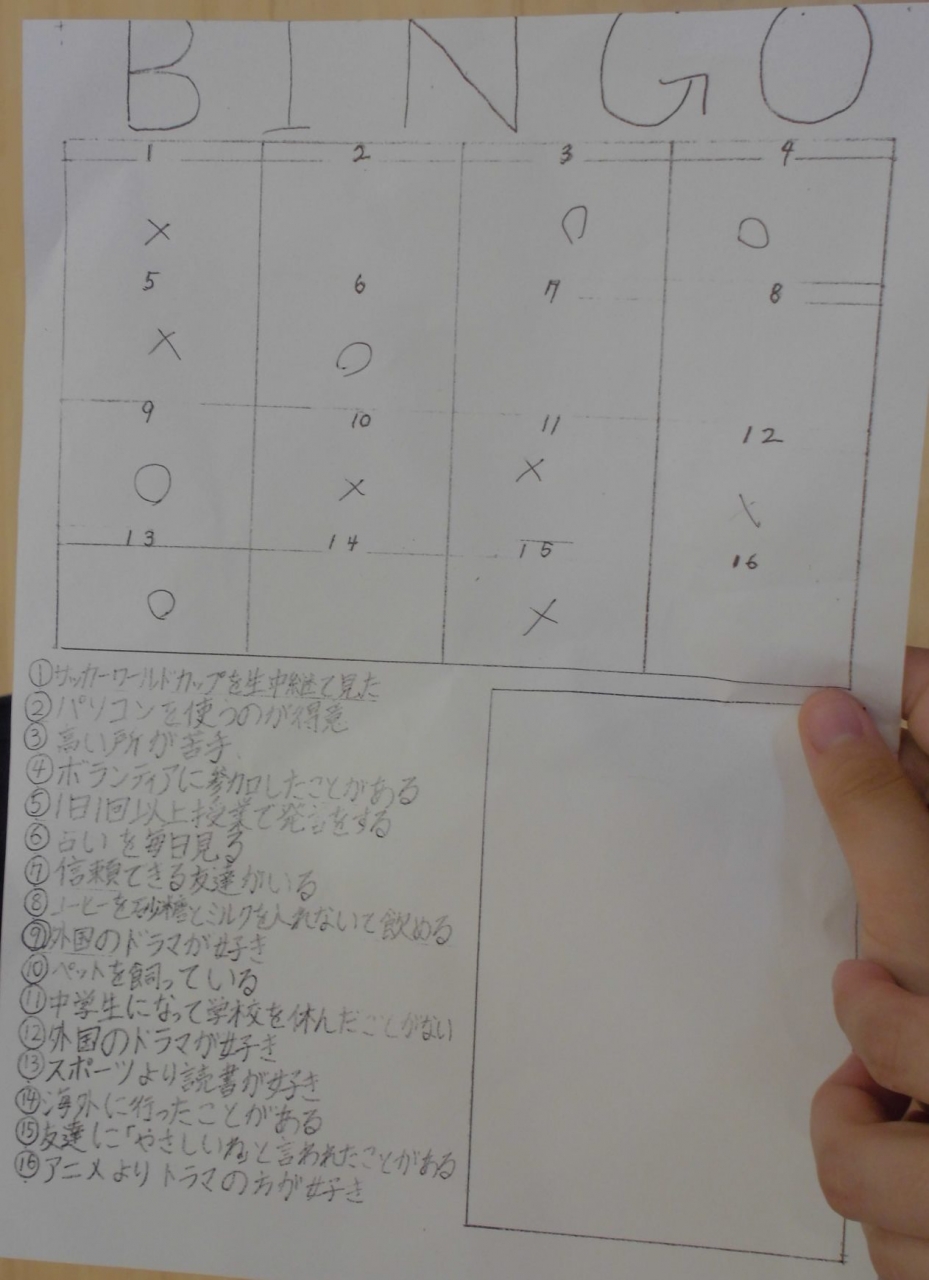 BINGO
1 2 3 4
× ○ ○
5 6 7 8
× ○
9 10 11 12
○ × × ×
13 14 15 16
○ ×
①サッカーワールドカップを生中継で見た
②パソコンを使うのが得意
③高い所が苦手
④ボランティアに参加したことがある
⑤1日1回以上授業で発言をする
⑥占いを毎日見る
⑦信頼できる友達がいる
⑧コーヒーを砂糖とミルクを入れないで飲める
⑨外国のドラマが好き
⑩ペットを飼っている
⑪中学生になって学校を休んだことがない
⑫外国のドラマが好き
⑬スポーツより読書が好き
⑭海外に行ったことがある
⑮友達に「やさしいね」と言われたことがある
⑯アニメよりドラマの方が好き